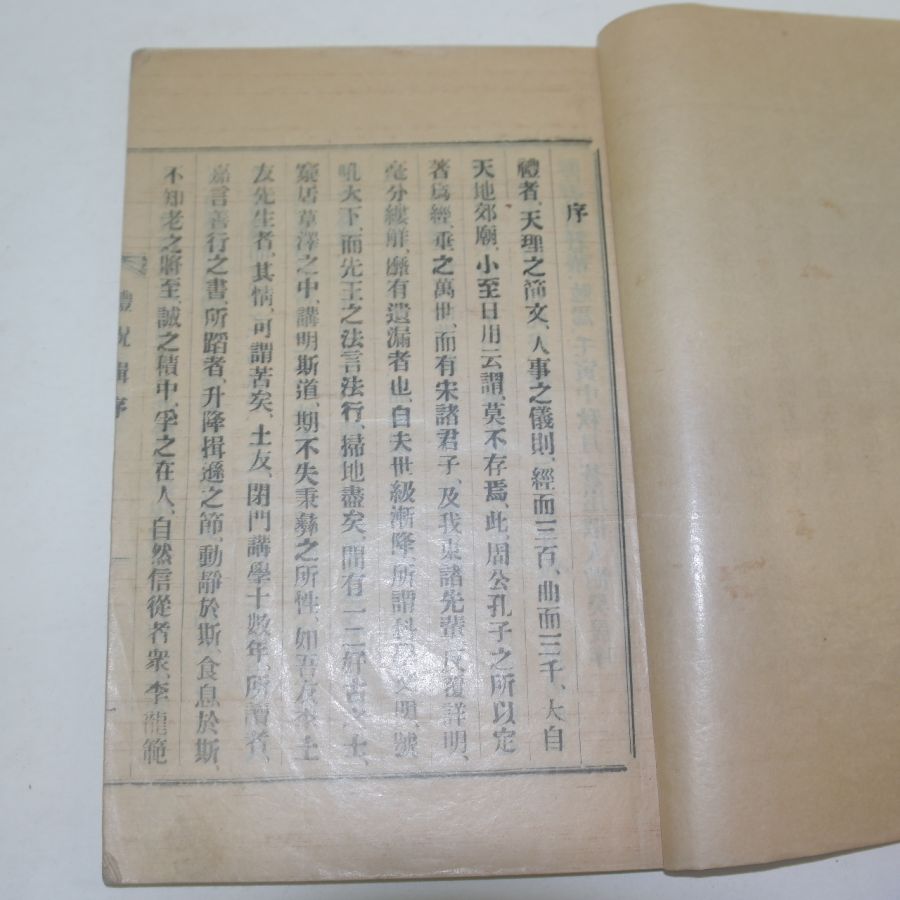 序
禮者、天理之節文、人事之儀則、經而三百、曲而三千、大自
天地郊廟、小至日用云謂、莫不存焉、此、周公孔子之所以定
著爲經、垂之萬世、而有宋諸君子、及我東諸先輩、反覆詳明、
毫分縷觧、靡有遺漏者也、自夫世級漸降、所謂科學文明、號
吼天下、而先王之法言法行、掃地盡矣、間有一二好古之士、
窮居草澤之中、講明斯道、期不失秉彝之所性、如吾友李士
友先生者、其情、可謂苦矣、士友、閉門講學十數年、所讀者、
嘉言善行之書、所蹈者、升降揖遜之節、動靜於斯、食息於斯、
不知老之將至、誠之積中、孚之在人、自然信從者衆、李龍範
禮說輯序 一